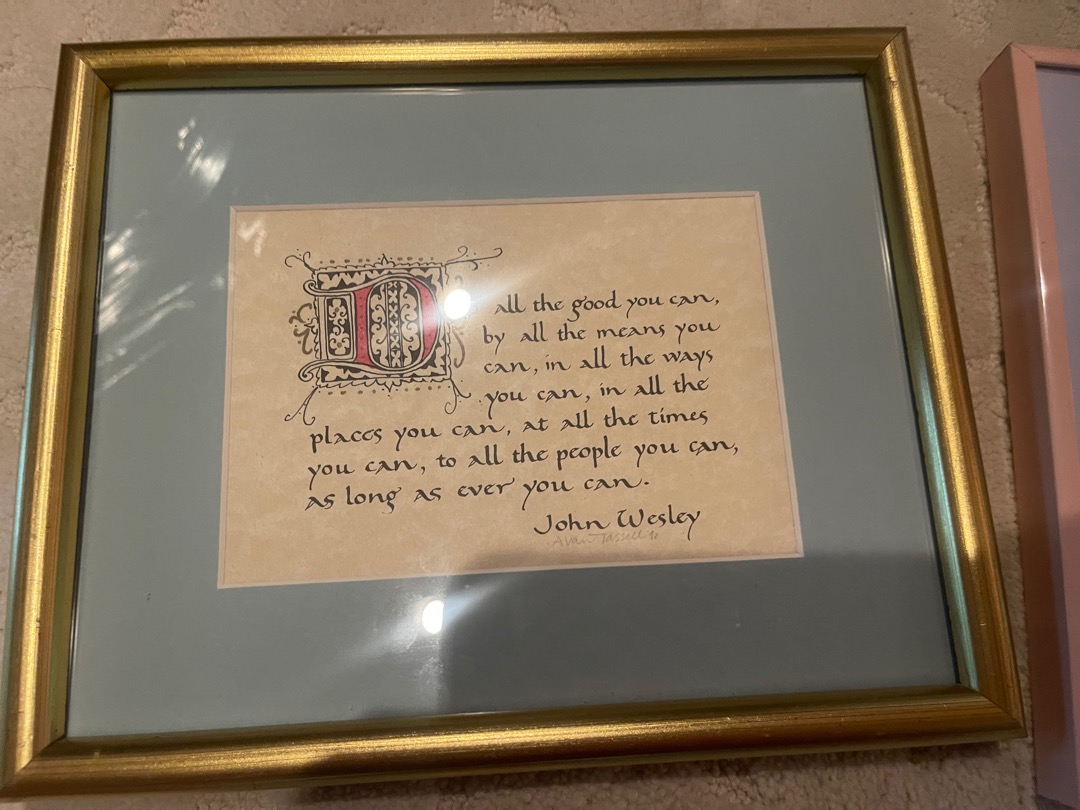 D all the good you can,
by all the means you
can, in all the ways
you can, in all the
places you can, at all the times
you can, to all the people you can,
as long as ever you can.
John Wesley
A Van Tassell